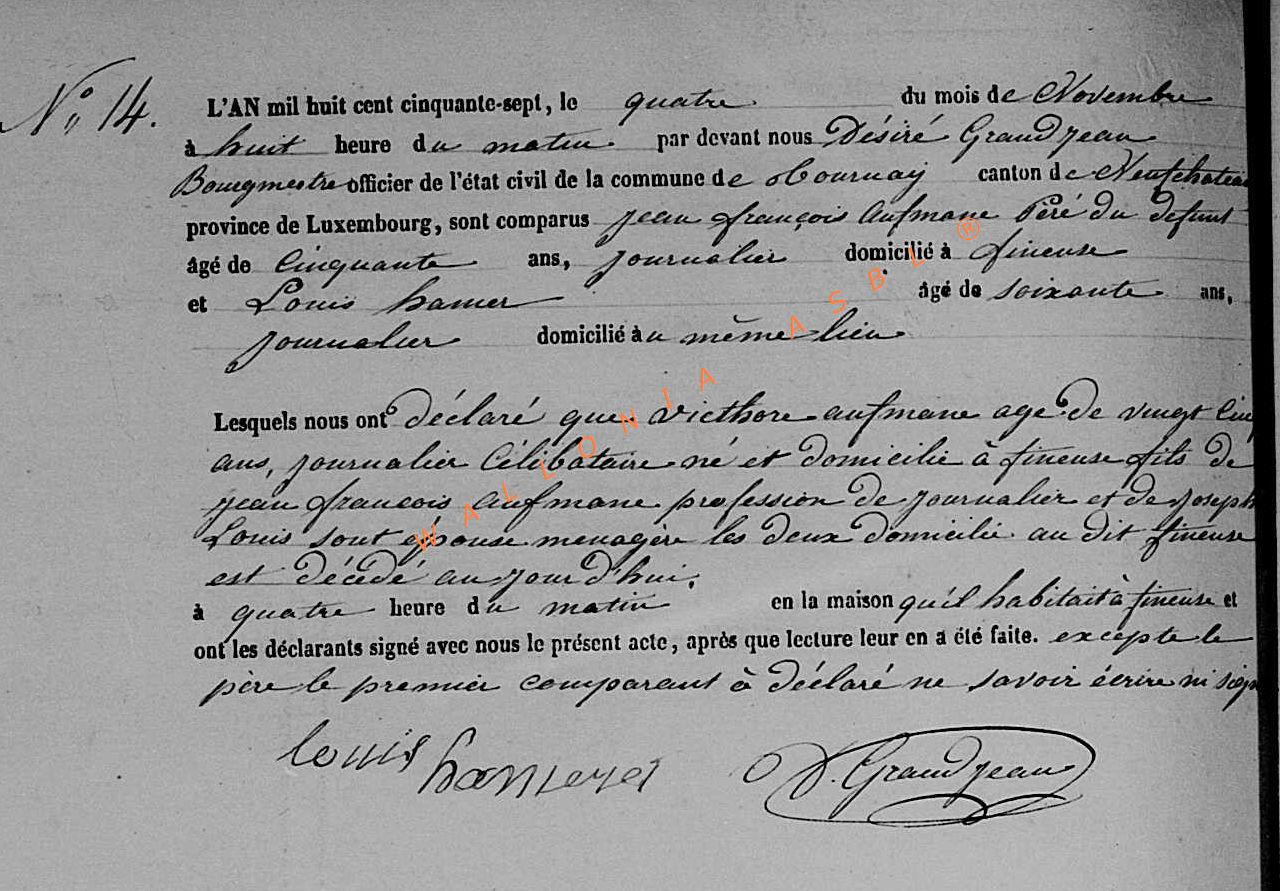 N° 14.
L'AN mil huit cent cinquante-sept, le quatre du mois de Novembre
à huit heure du matin par devant nous Désiré Grandjean
Bourgmestre officier de l'état civil de la commune de Tournay canton de Neufchateau
province de Luxembourg, sont comparus jean françois aufmane Péré du defunt
âgé de Cinquante ans, journalier domicilié à fineuse
et Louis hamer âgé de soixante ans,
journalier domicilié au même lieu
Lesquels nous ont déclaré que victhore aufmane age de vingt Cin
ans, journalier Célibataire né et domicilié à fineuse fils de
jean francois aufmane profession de journalier et de joseph
Louis sont épouse menagère les deux domicilié au dit fineuse
est décédé au jour d'hui,
à quatre heure du matin en la maison qu'il habitait à fineuse et
ont les déclarants signé avec nous le présent acte, après que lecture leur en a été faite. excepte le
père le premier comparant à déclaré ne savoir écrire ni sign
louis
D. Grandjean
WALLONIA ASBL ®